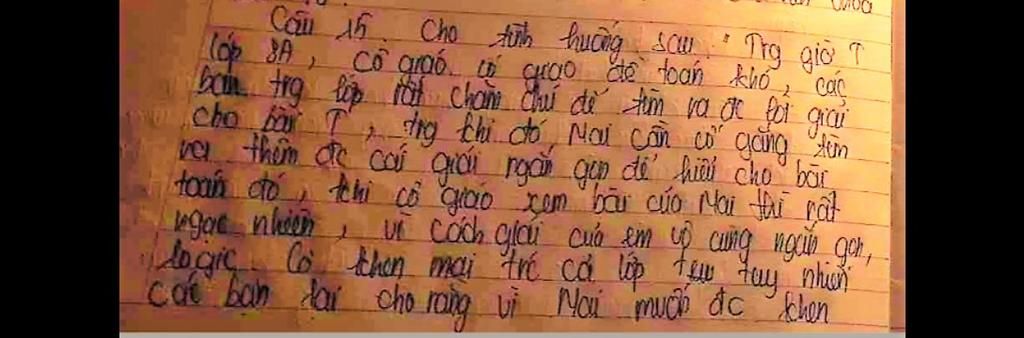 Câu 15. Cho tình huống sau "Trg giờ T
lớp 8A, cô giáo có giao đề toán khó, các
bạn trg lớp rất chăm chú để tìm ra đc lời giải
cho bài T, trg khi đó Mai cần cố gắng tìm
ra thêm đc cái giải ngắn gọn dể hiểu cho bài
toán đó, khi cô giáo xem bài của Mai thì rất
ngạc nhiên, vì cách giải của em vô cùng ngắn gọn,
logic. Cô khen mai trc cả lớp tuy nhiên
các bạn lại cho rằng vì Mai muốn đc khen